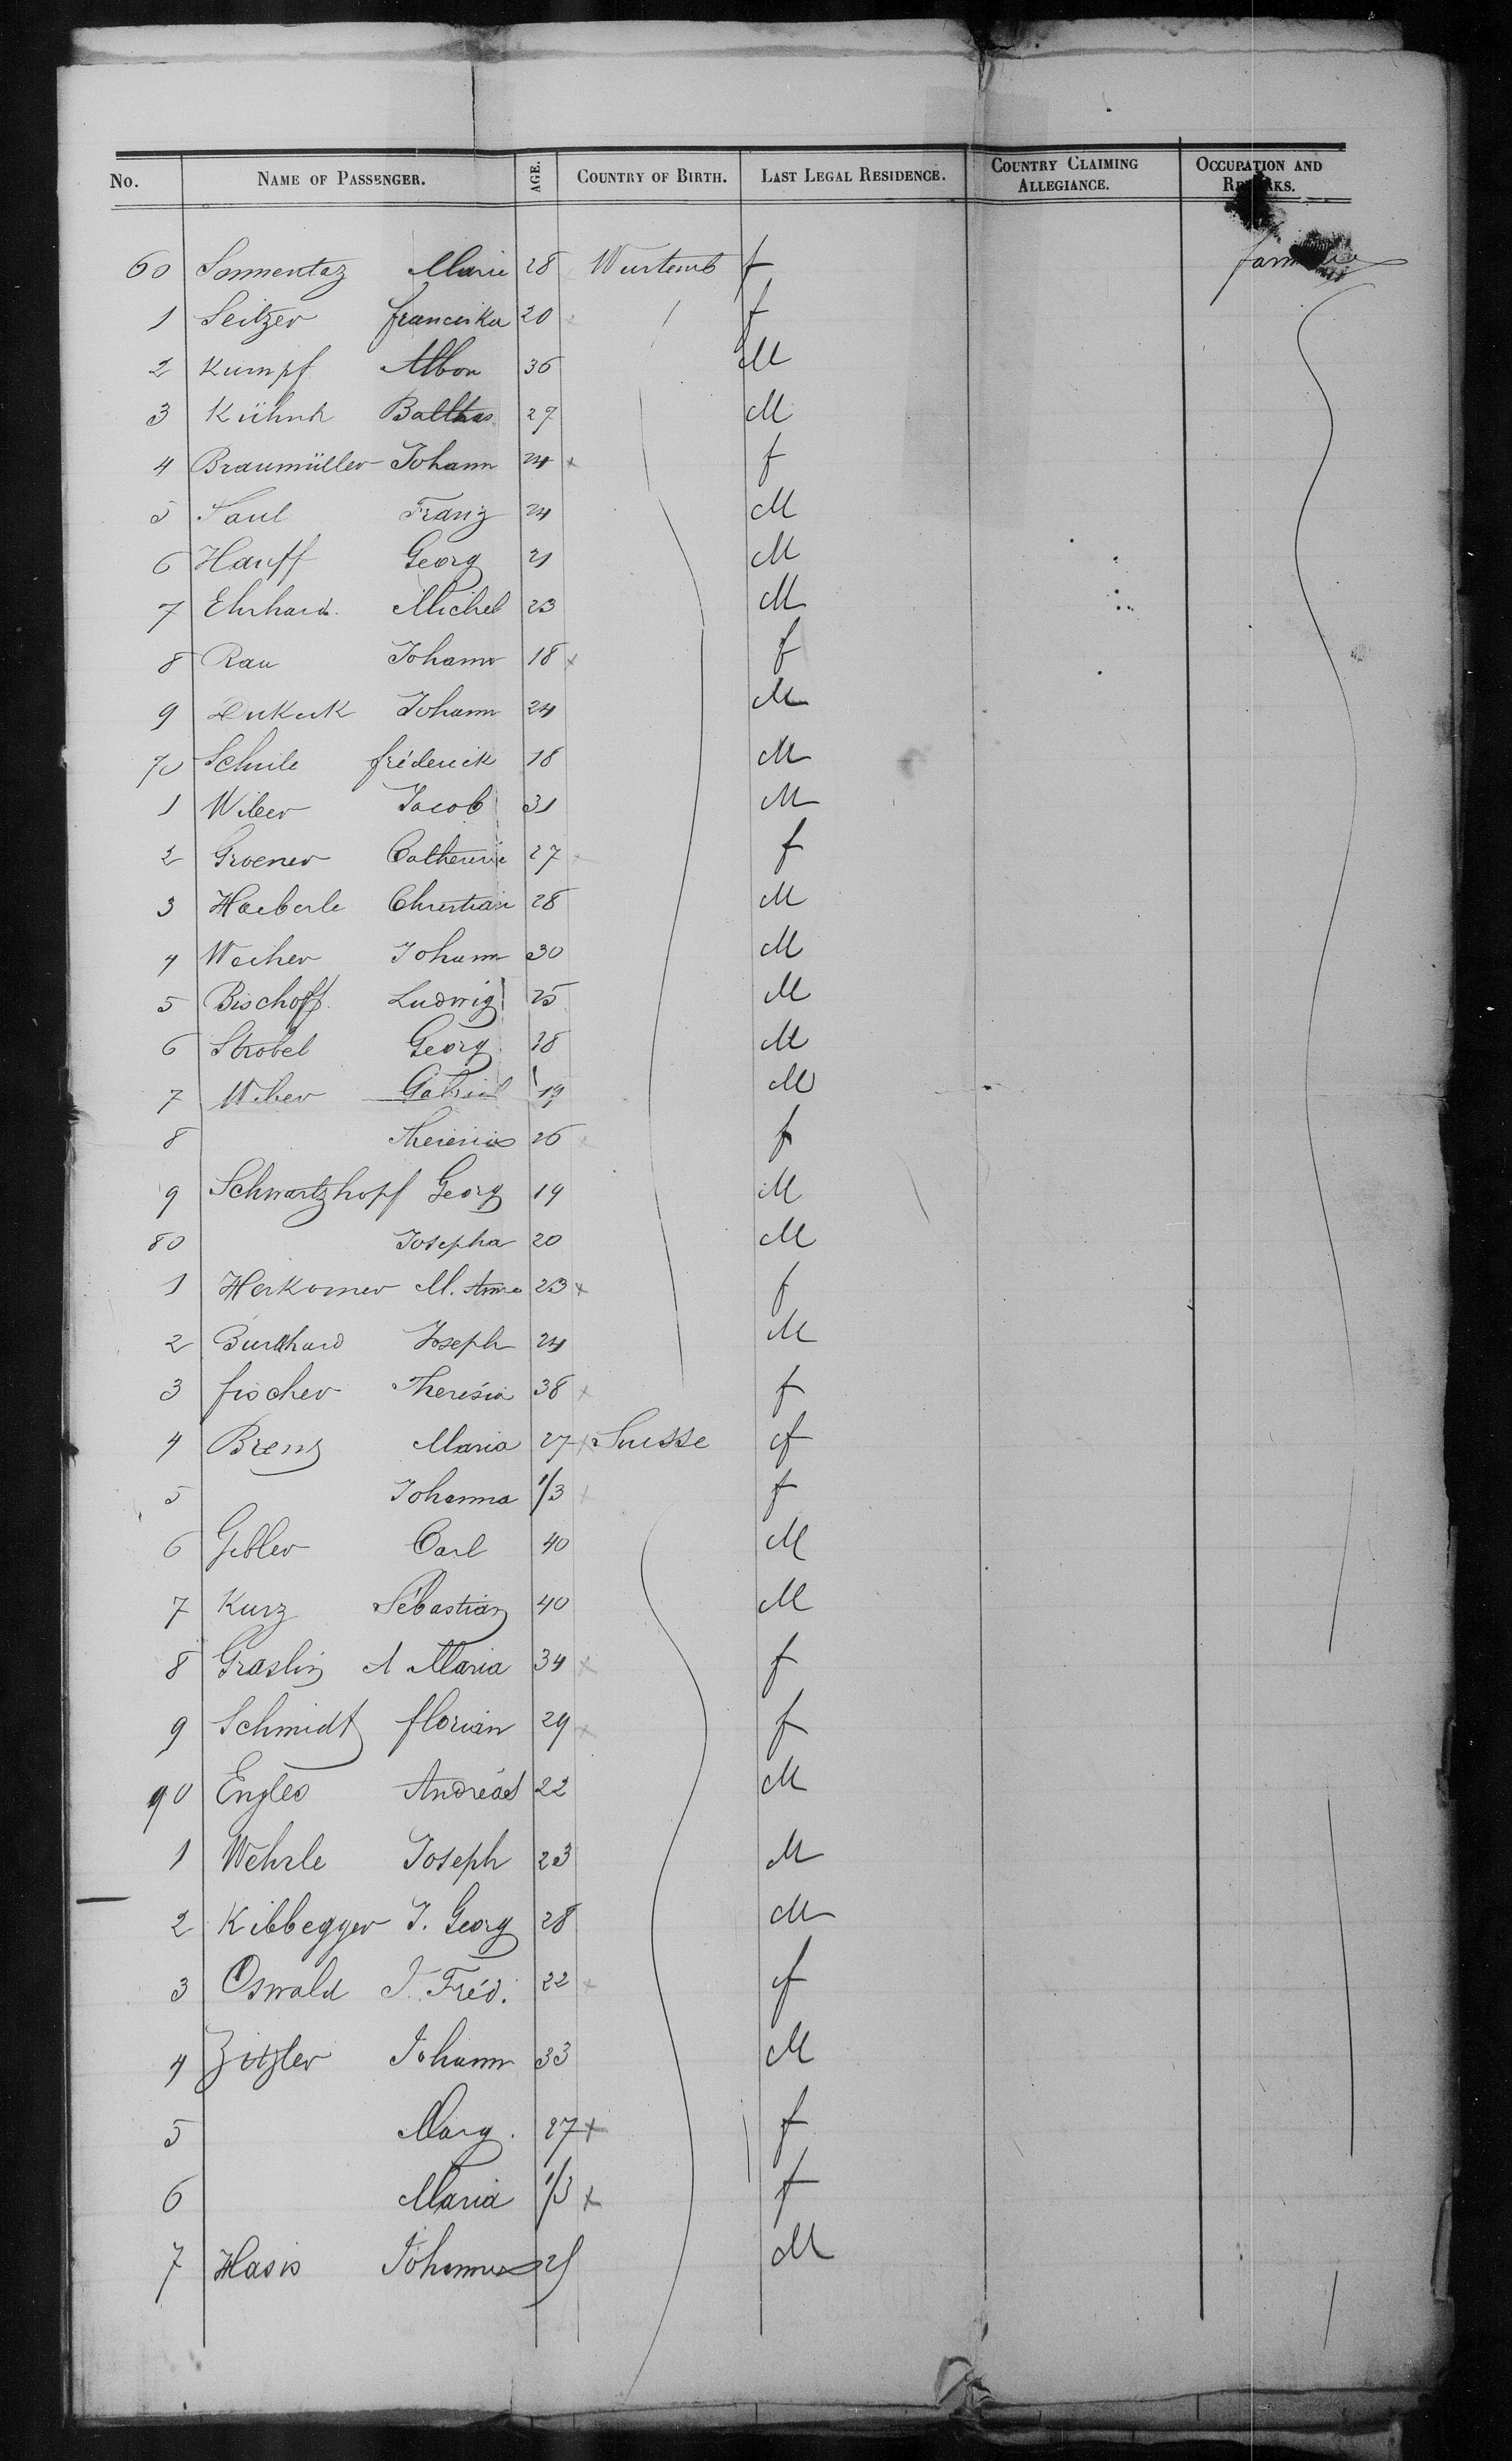 No. NAME OF PASSENGER. AGE. COUNTRY OF BIRTH. LAST LEGAL RESIDENCE. COUNTRY CLAIMING ALLEGIANCE. OCCUPATION AND REMARKS.
60 Sonnentag Marie 28 Wurtemb f
1 Seitzer franciska 20 f
2 Kumpf Albon 36 M
3 Kühnh Balthas. 27 M
4 Braumüller Johann 24 x f
5 Saul Franz 24 M
6 Hauff Georg 21 M
7 Ehrhard Michel 23 M
8 Rau Johann 18 x f
9 Johann 24 M
70 Schule fréderick 18 M
1 Weber Jacob 31 M
2 Groener Catherine 27 x f
3 Haeberle Christian 28 M
4 Weiher Johann 30 M
5 Bischoff Ludwig 25 M
6 Strobel Georg 28 M
7 Weber Gabriel 19 M
8 Theresia 26 x f
9 Schwartzhopf Georg 19 M
80 Josepha 20 M
1 Herkomer M. Anna 23 x f
2 Burkhard Joseph 24 M
3 fischer Theresia 38 x f
4 Brenz Maria 27 x Suisse f
5 Johanna 1/3 x f
6 Gebler Carl 40 M
7 Kurz Sébastian 40 M
8 Graslin A Maria 34 x f
9 Schmidt florian 29 x f
90 Engles Andréas 22 M
1 Wehrle Joseph 23 M
2 Kibbegger J. Georg 28 M
3 Oswald J. Fréd. 22 x f
4 Zitzler Johann 33 M
5 Marg. 27 x f
6 Maria 1/3 x f
7 Hasis Johannes M